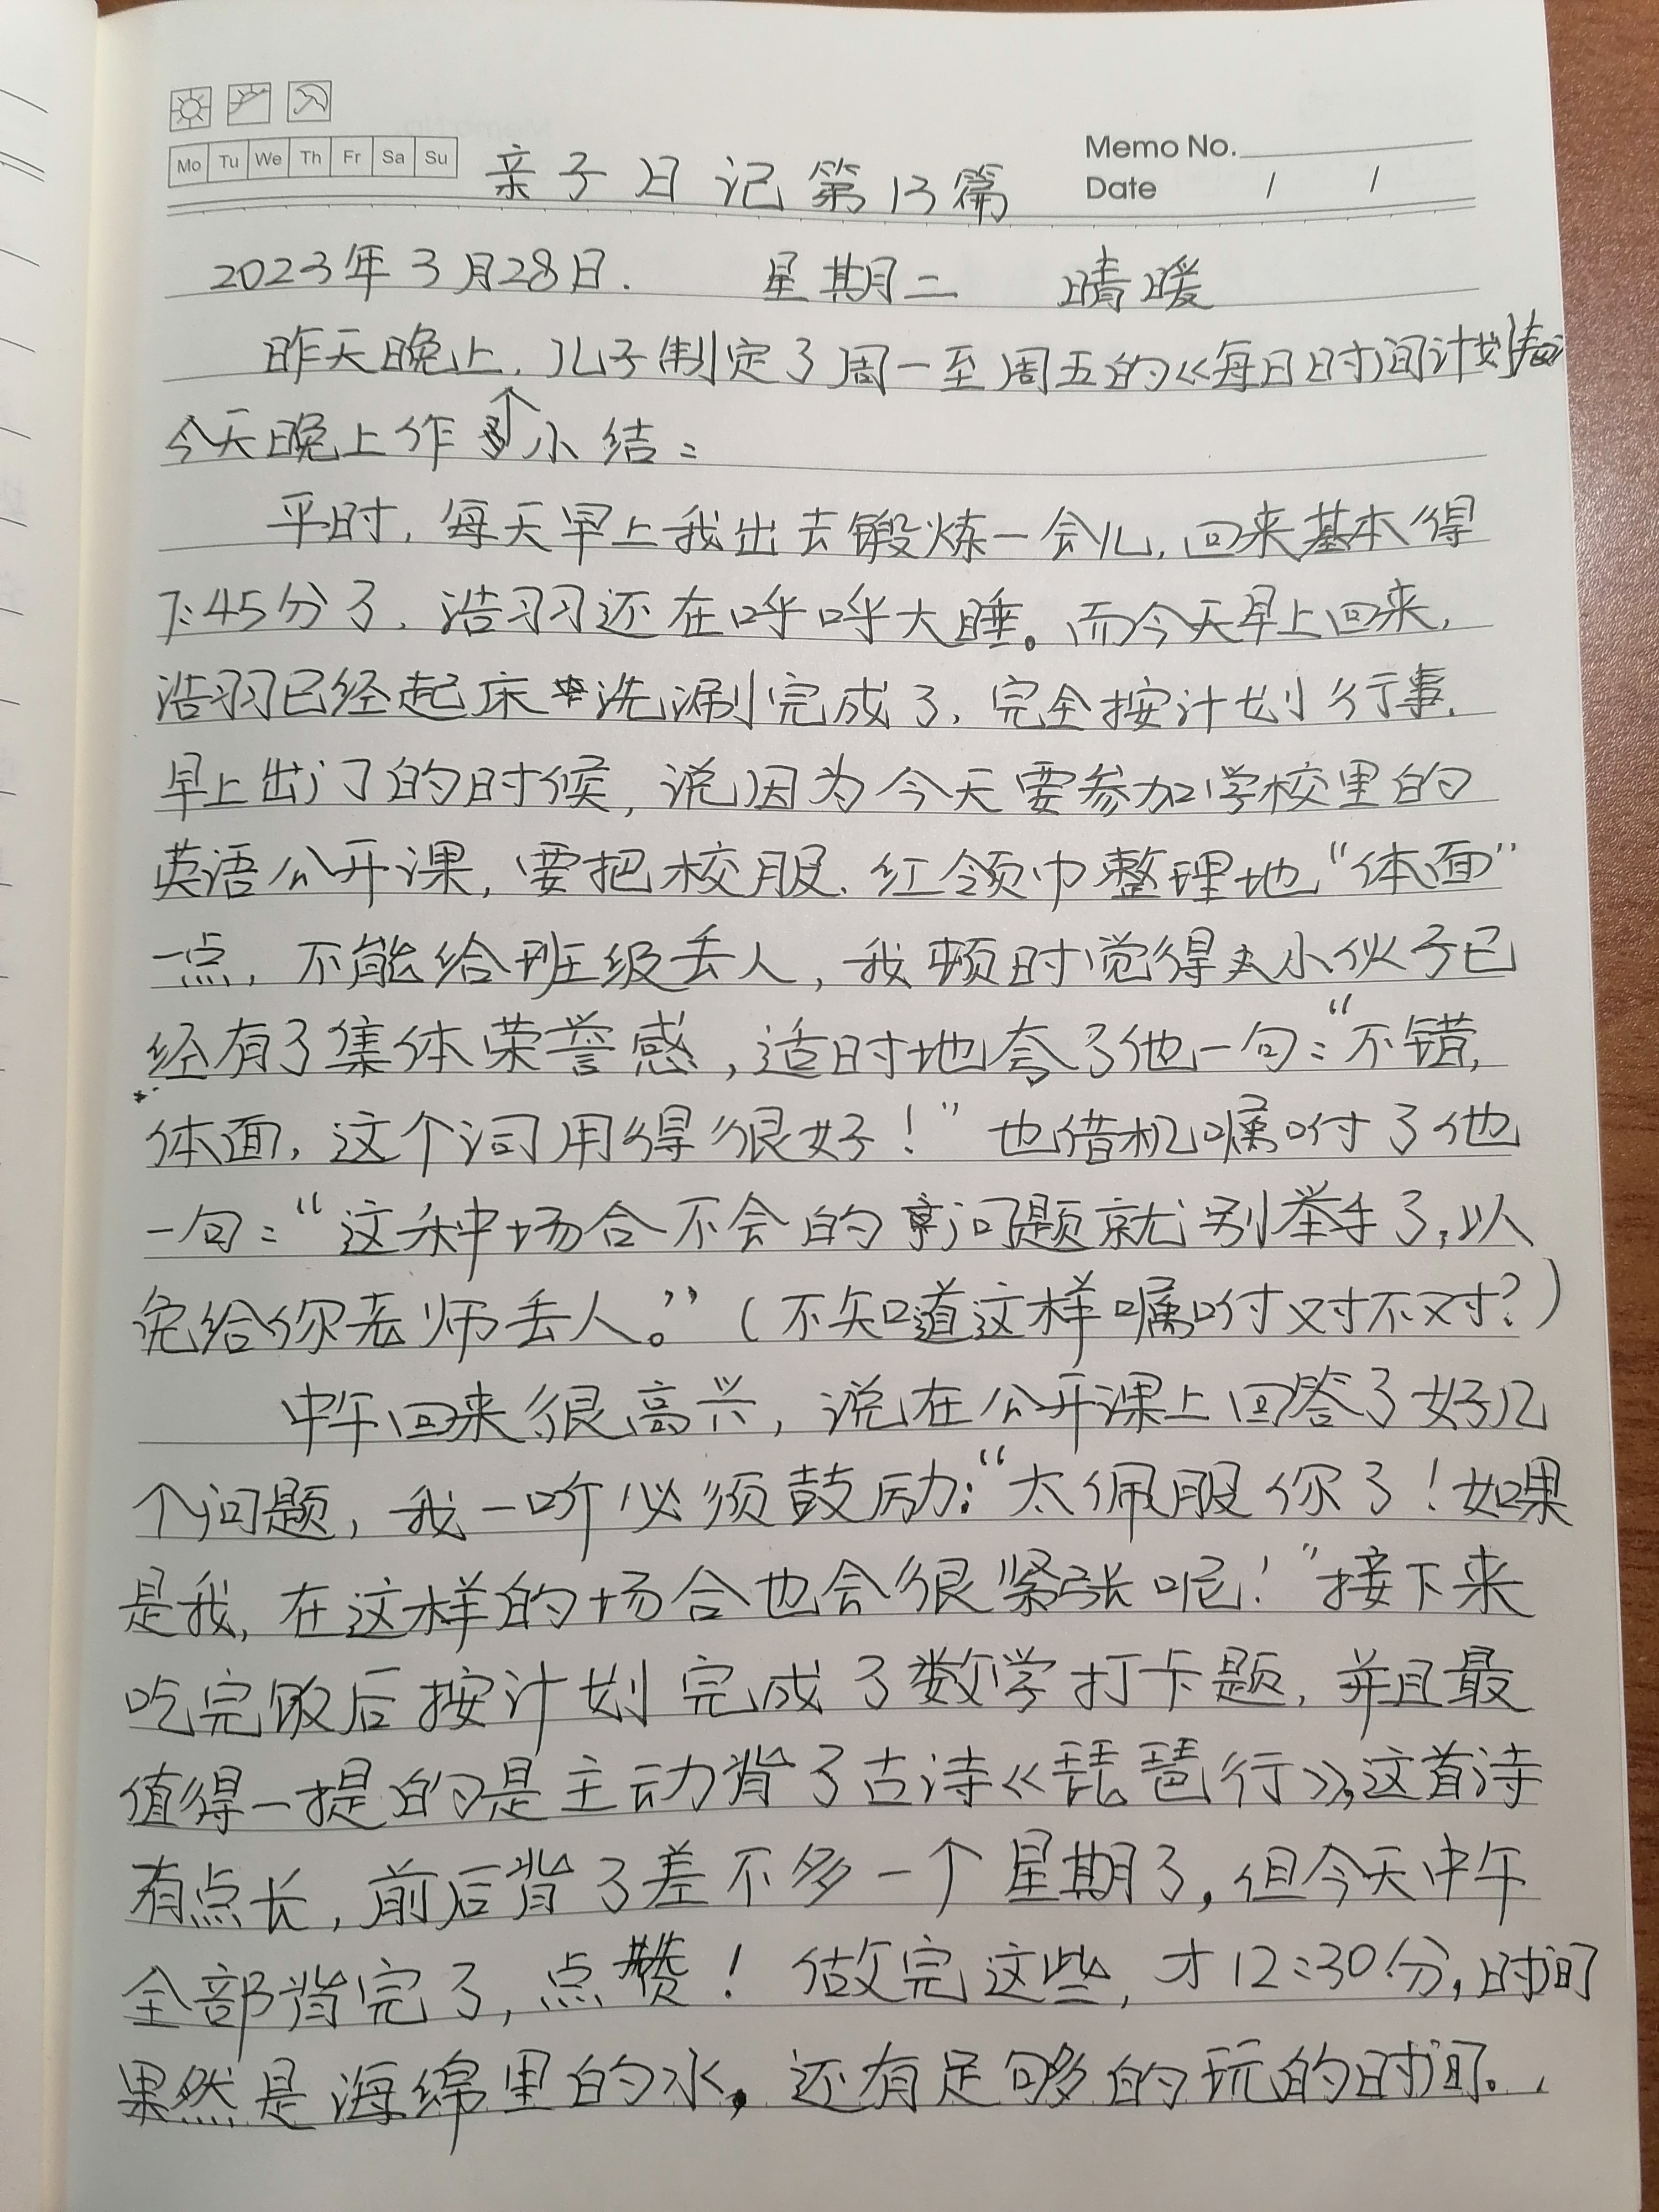 Mo Tu We Th Fr Sa Su
Memo No.
Date / /
亲子日记第13篇
2023年3月28日. 星期二 晴暖
昨天晚上,儿子制定了周一至周五的《每日时间计划表》
今天晚上作个小结:
平时,每天早上我出去锻炼一会儿,回来基本得
7:45分了,浩羽还在呼呼大睡。而今天早上回来,
浩羽已经起床洗涮完成了,完全按计划行事.
早上出门的时候,说因为今天要参加学校里的
英语公开课,要把校服.红领巾整理地“体面”
一点,不能给班级丢人,我顿时觉得小伙子已
经有了集体荣誉感,适时地夸了他一句:“不错,
体面,这个词用得很好!”也借机嘱咐了他
一句:“这种场合不会的问题就别举手了,以
免给你老师丢人。”(不知道这样嘱咐对不对?)
中午回来很高兴,说在公开课上回答了好几
个问题,我一听必须鼓励:“太佩服你了!如果
是我,在这样的场合也会很紧张呢!”接下来
吃完饭后按计划完成了数学打卡题,并且最
值得一提的是主动背了古诗《琵琶行》,这首诗
有点长,前后背了差不多一个星期了,但今天中午
全部背完了,点赞!做完这些,才12:30分,时间
果然是海绵里的水,还有足够的玩的时间。